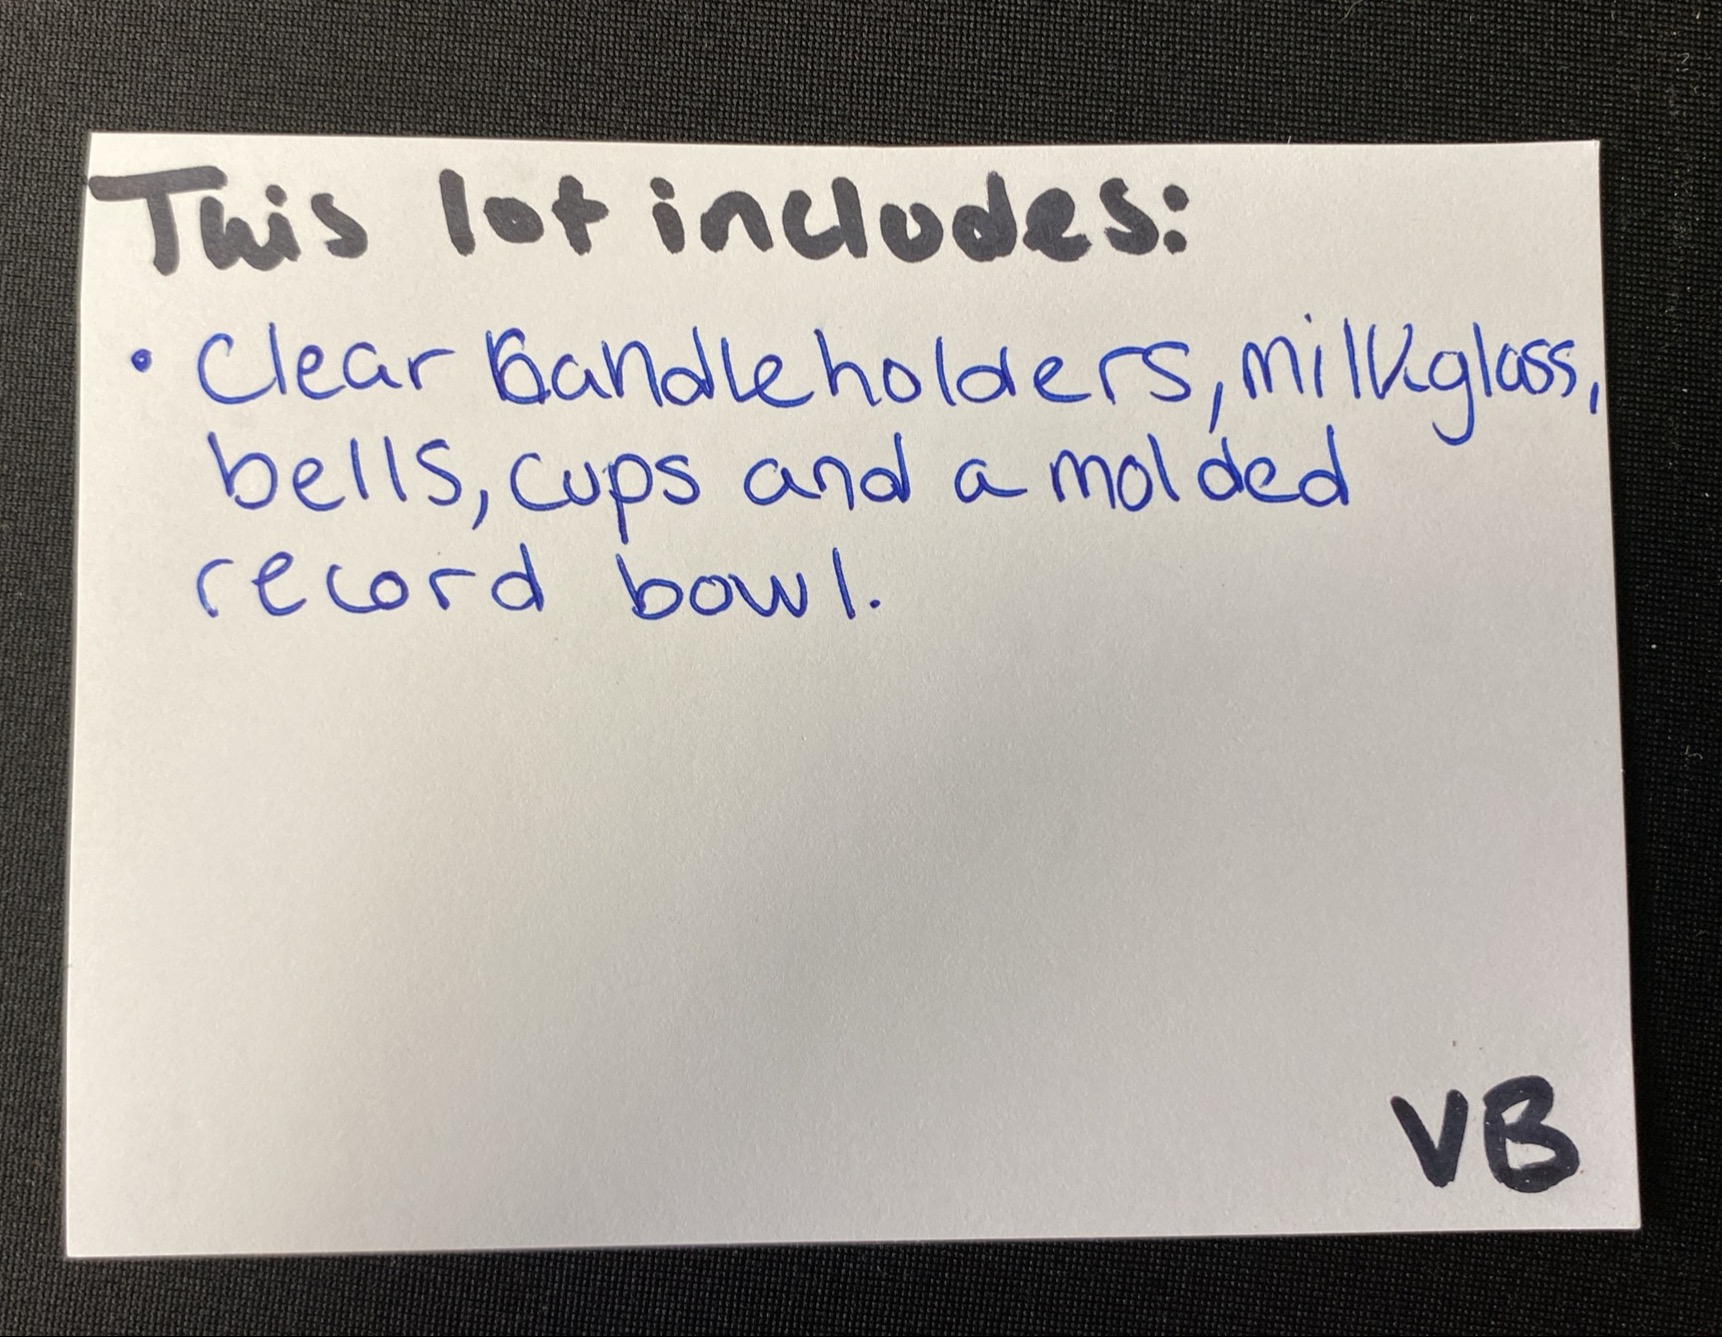 This lot includes:
• Clear Candleholders, milkglass,
bells, cups and a molded
record bowl.
VB